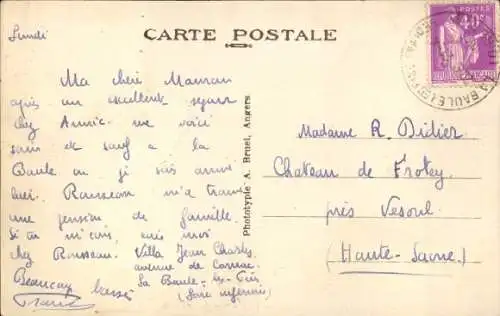 Lundi
CARTE POSTALE
POSTES
40c
LA BAULE
Ma chère Maman
après un excellent séjour
chez Annie me voici
sain et sauf à la
Baule où je suis arrivé
hier. Rousseau m'a trouvé
une pension de famille.
Si tu m'écris, écris moi
chez Rousseau. Villa Jean Charles
avenue de Carnac
La Baule-les-Pins
(Loire inférieure)
Beaucoup
Phototypie A. Bruel, Angers
Madame R. Didier
Château de Frotey
près Vesoul
(Haute-Saône)